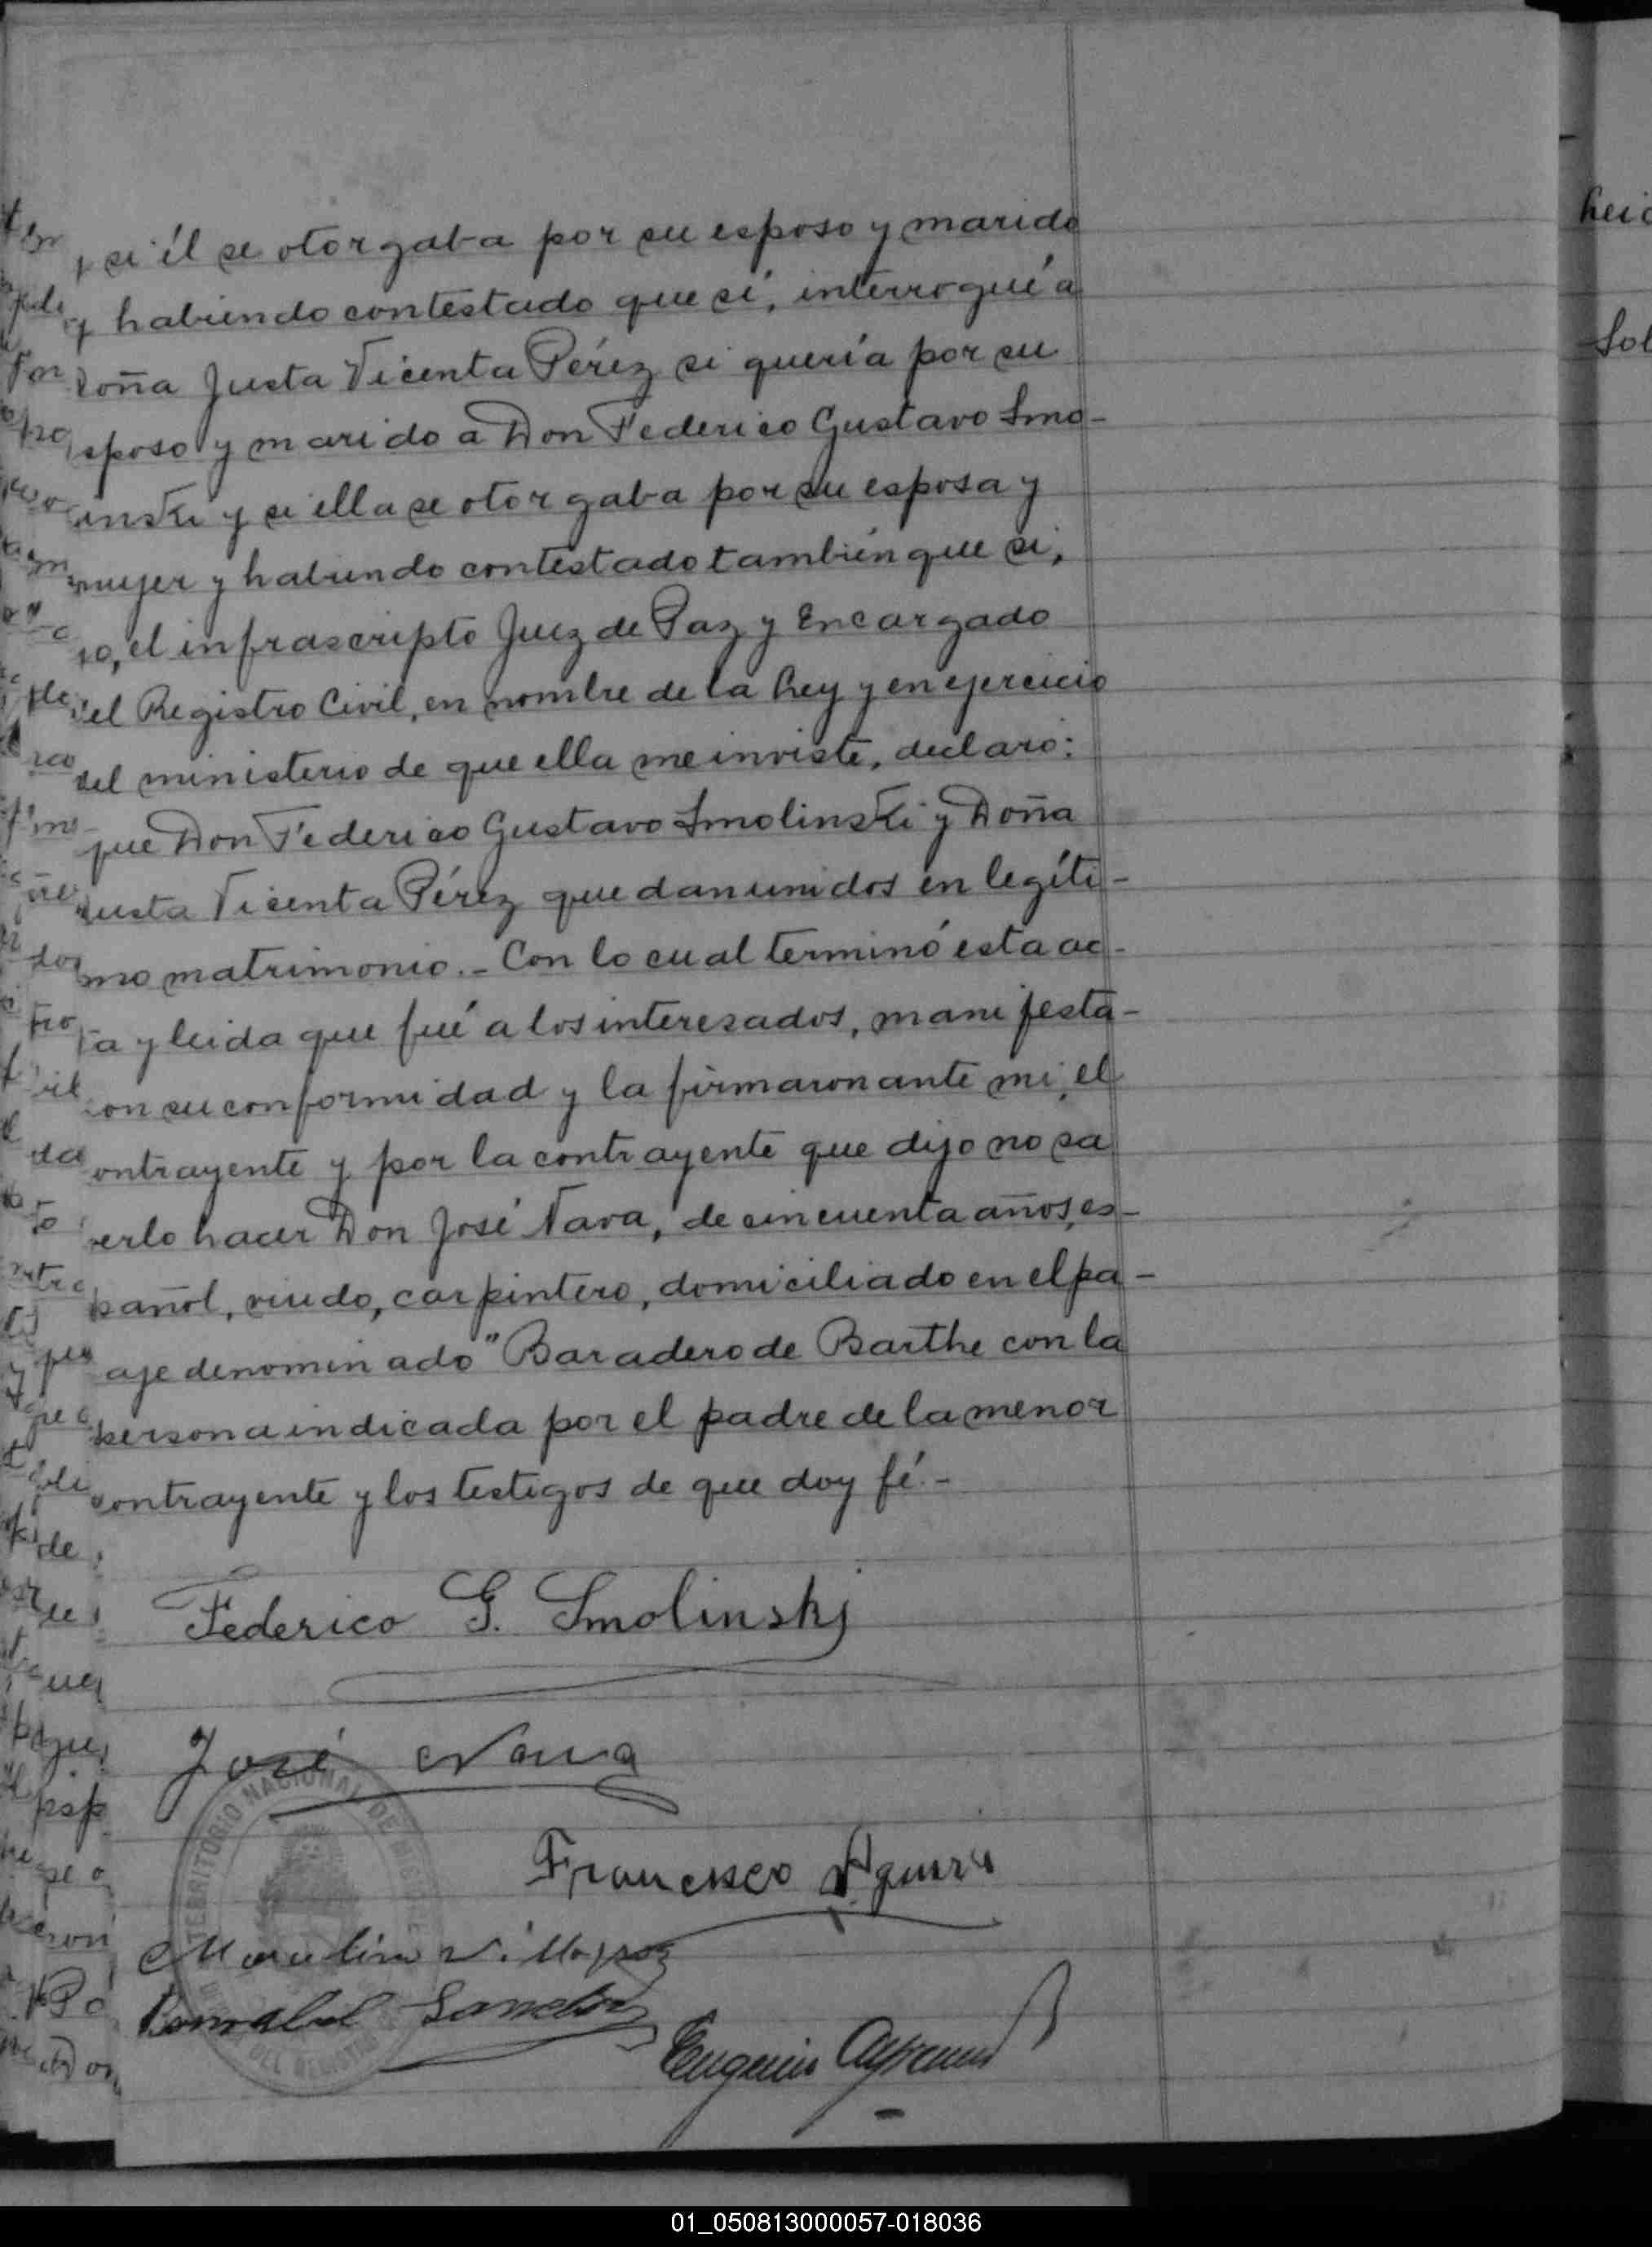 y si él se otorgaba por su esposo y marido
y habiendo contestado que sí, interrogué a
Doña Justa Vicenta Pérez si quería por su
esposo y marido a Don Federico Gustavo Smo-
linski y si ella se otorgaba por su esposa y
mujer y habiendo contestado también que si,
yo, el infrascripto Juez de Paz y Encargado
del Registro Civil, en nombre de la Ley y en ejercicio
del ministerio de que ella me inviste, declaro:
que Don Federico Gustavo Smolinski y Doña
Justa Vicenta Pérez quedan unidos en legíti-
mo matrimonio.- Con lo cual terminó esta ac-
ta y leida que fué a los interesados, manifesta-
ron su conformidad y la firmaron ante mi, el
contrayente y por la contrayente que dijo no sa
berlo hacer Don José Nava, de cincuenta años, es-
pañol, viudo, carpintero, domiciliado en el pa-
aje denominado "Baradero de Barthe con la
persona indicada por el padre de la menor
contrayente y los testigos de que doy fé.-
Federico G. Smolinski
José Nava
Francisco Aguirre
TERRITORIO NACIONAL DE MISIONES
DEL REGISTRO
Eugenio
01_050813000057-018036